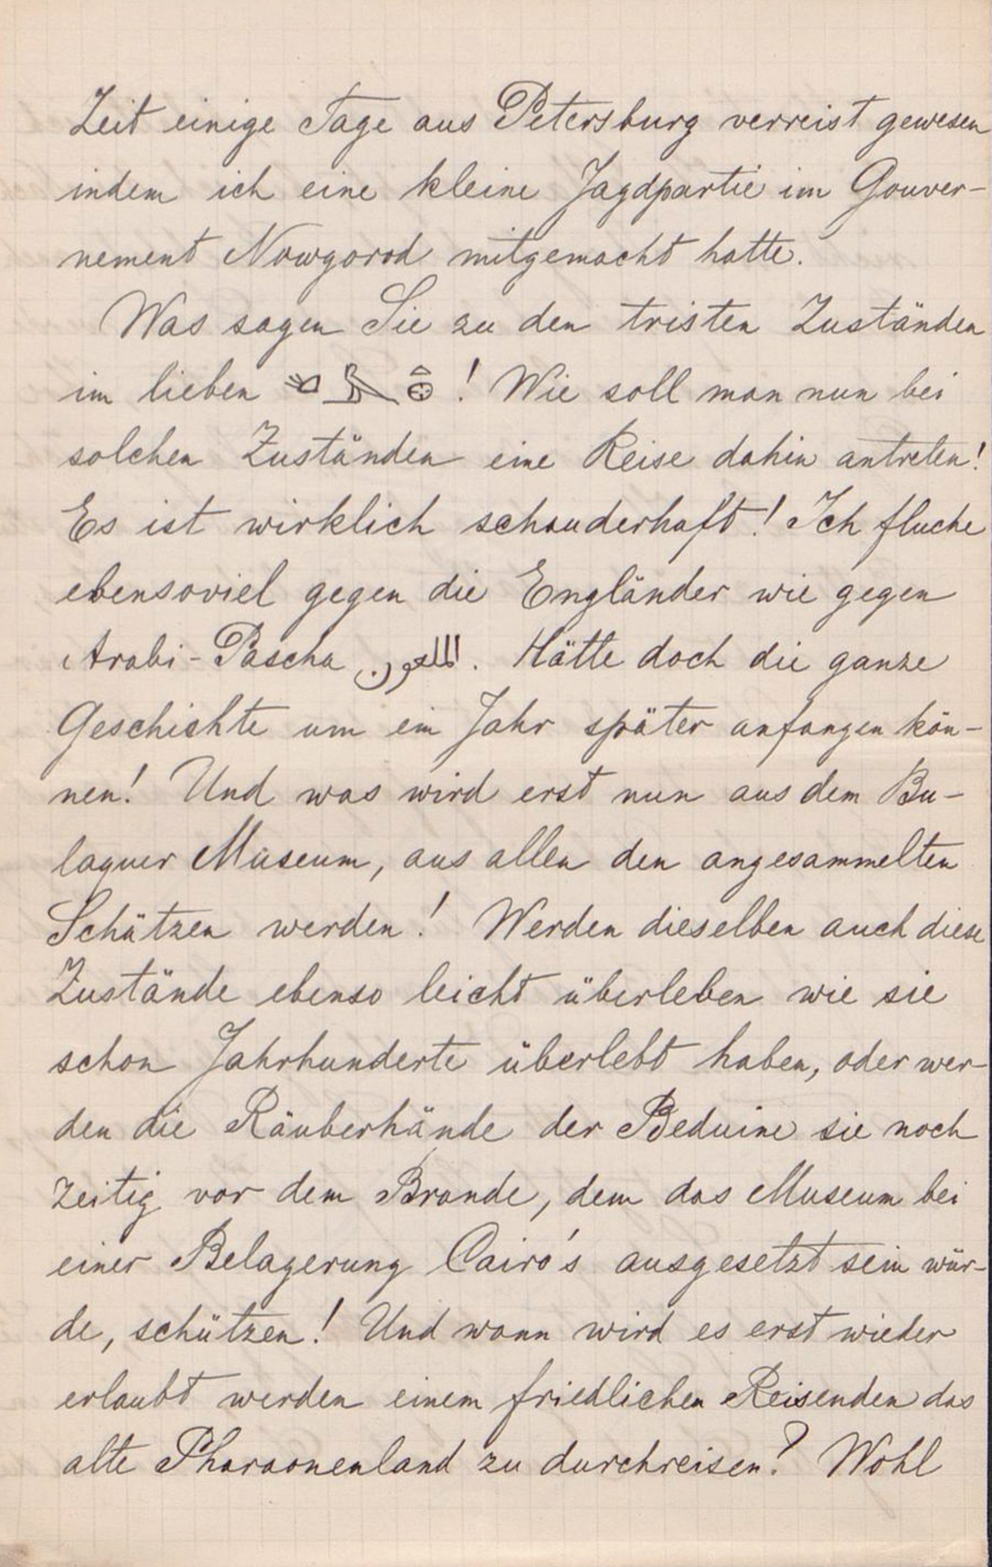 Zeit einige Tage aus Petersburg verreist gewesen
indem ich eine kleine Jagdpartie im Gouver-
nement Nowgorod mitgemacht hatte.
Was sagen Sie zu den tristen Zuständen
im lieben ! Wie soll man nun bei
solchen Zuständen eine Reise dahin antreten!
Es ist wirklich schauderhaft! Ich fluche
ebensoviel gegen die Engländer wie gegen
Arabi-Pascha الملعون. Hätte doch die ganze
Geschichte um ein Jahr später anfangen kön-
nen! Und was wird erst nun aus dem Bu-
laquer Museum, aus allen den angesammelten
Schätzen werden! Werden dieselben auch diese
Zustände ebenso leicht überleben wie sie
schon Jahrhunderte überlebt haben, oder wer-
den die Räuberhände der Beduine sie noch
zeitig vor dem Brande, dem das Museum bei
einer Belagerung Cairo's ausgesetzt sein wür-
de, schützen! Und wann wird es erst wieder
erlaubt werden einem friedlichen Reisenden das
alte Pharaonenland zu durchreisen? Wohl